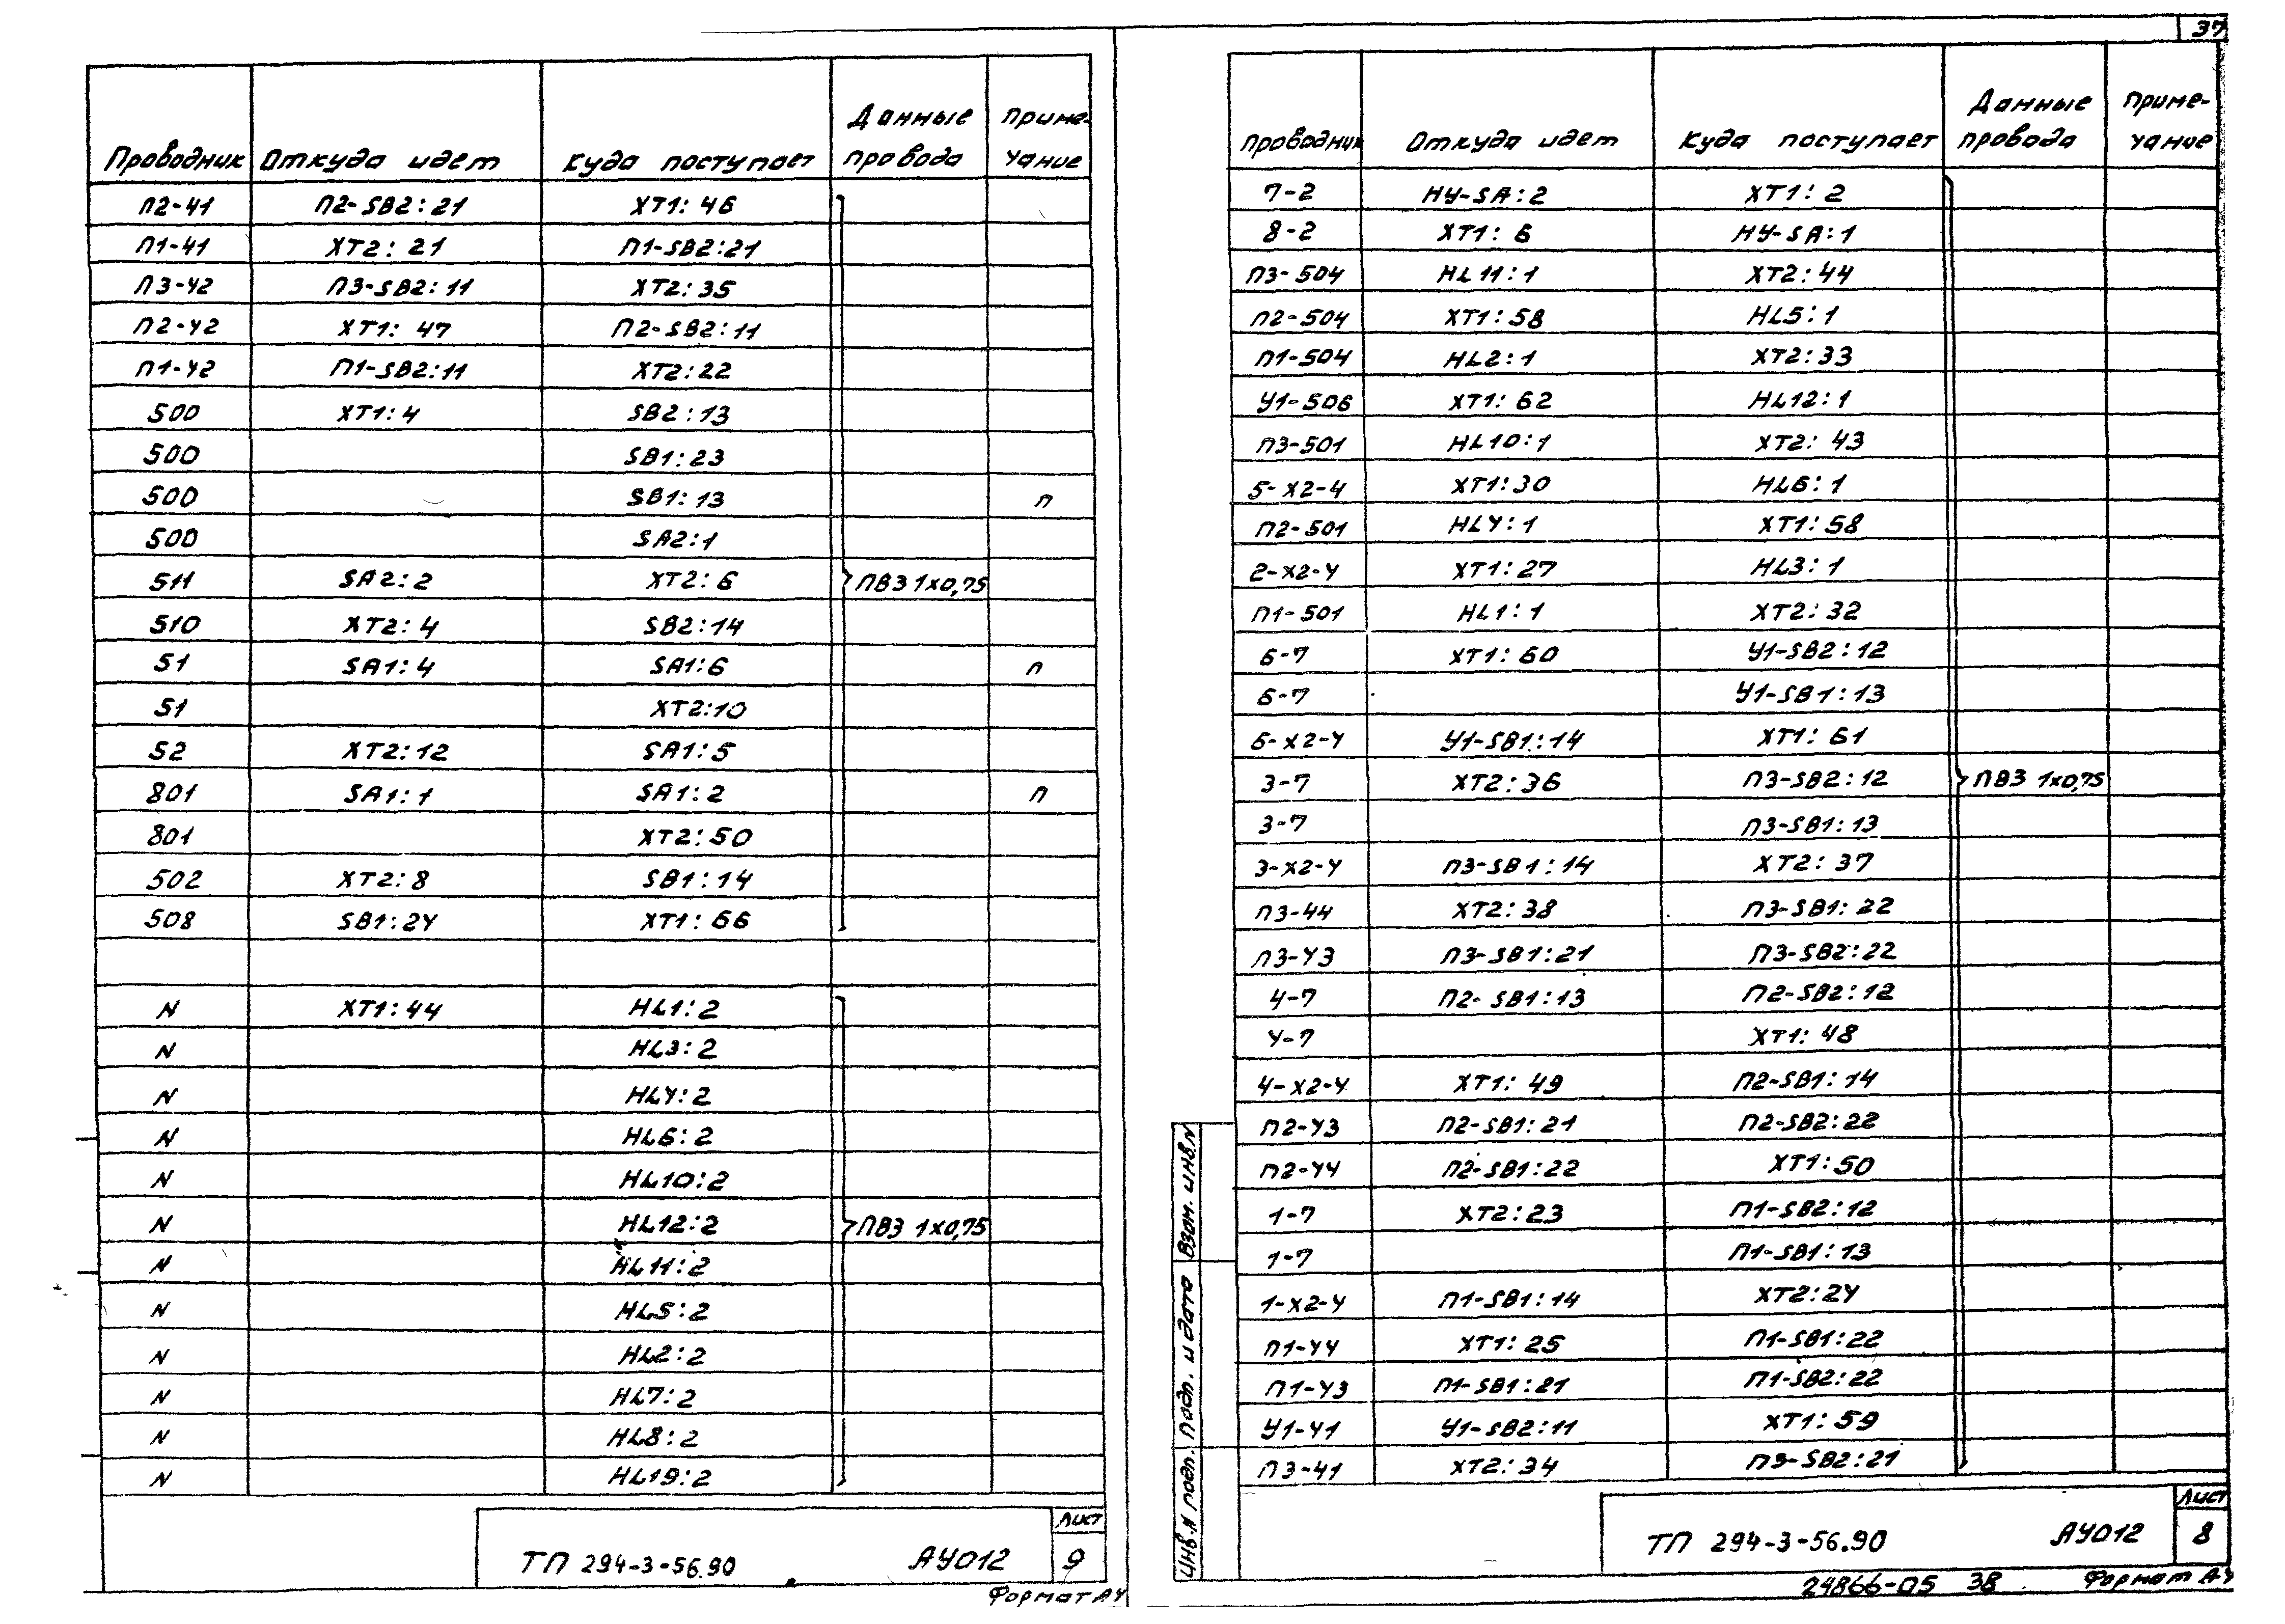 37
Проводник Откуда идет Куда поступает Данные провода Приме-чание
П2-41 П2-SB2:21 XT1:46
П1-41 XT2:21 П1-SB2:21
П3-42 П3-SB2:11 XT2:35
П2-42 XT1:47 П2-SB2:11
П1-42 П1-SB2:11 XT2:22
500 XT1:4 SB2:13
500 SB1:23
500 SB1:13 п
500 SA2:1
511 SA2:2 XT2:6 ПВ3 1х0,75
510 XT2:4 SB2:14
51 SA1:4 SA1:6 п
51 XT2:10
52 XT2:12 SA1:5
801 SA1:1 SA1:2 п
801 XT2:50
502 XT2:8 SB1:14
508 SB1:24 XT1:66
N XT1:44 HL1:2
N HL3:2
N HL4:2
N HL6:2
N HL10:2
N HL12:2 ПВ3 1х0,75
N HL11:2
N HL5:2
N HL2:2
N HL7:2
N HL8:2
N HL19:2
ТП 294-3-56.90 АУ012 Лист 9
Формат А4
Проводник Откуда идет Куда поступает Данные провода Приме-чание
7-2 НУ-SA:2 XT1:2
8-2 XT1:6 НУ-SA:1
П3-504 HL11:1 XT2:44
П2-504 XT1:58 HL5:1
П1-504 HL2:1 XT2:33
У1-506 XT1:62 HL12:1
П3-501 HL10:1 XT2:43
5-Х2-4 XT1:30 HL6:1
П2-501 HL4:1 XT1:58
2-Х2-4 XT1:27 HL3:1
П1-501 HL1:1 XT2:32
6-7 XT1:60 У1-SB2:12
6-7 У1-SB1:13
6-Х2-4 У1-SB1:14 XT1:61
3-7 XT2:36 П3-SB2:12 ПВ3 1х0,75
3-7 П3-SB1:13
3-Х2-4 П3-SB1:14 XT2:37
П3-44 XT2:38 П3-SB1:22
П3-43 П3-SB1:21 П3-SB2:22
4-7 П2-SB1:13 П2-SB2:12
4-7 XT1:48
4-Х2-4 XT1:49 П2-SB1:14
П2-43 П2-SB1:21 П2-SB2:22
П2-44 П2-SB1:22 XT1:50
1-7 XT2:23 П1-SB2:12
1-7 П1-SB1:13
1-Х2-4 П1-SB1:14 XT2:24
П1-44 XT1:25 П1-SB1:22
П1-43 П1-SB1:21 П1-SB2:22
У1-41 У1-SB2:11 XT1:59
П3-41 XT2:34 П3-SB2:21
Взам. инв.N
Подп. и дата
Инв.N подл.
ТП 294-3-56.90 АУ012 Лист 8
24866-05 38 Формат А4